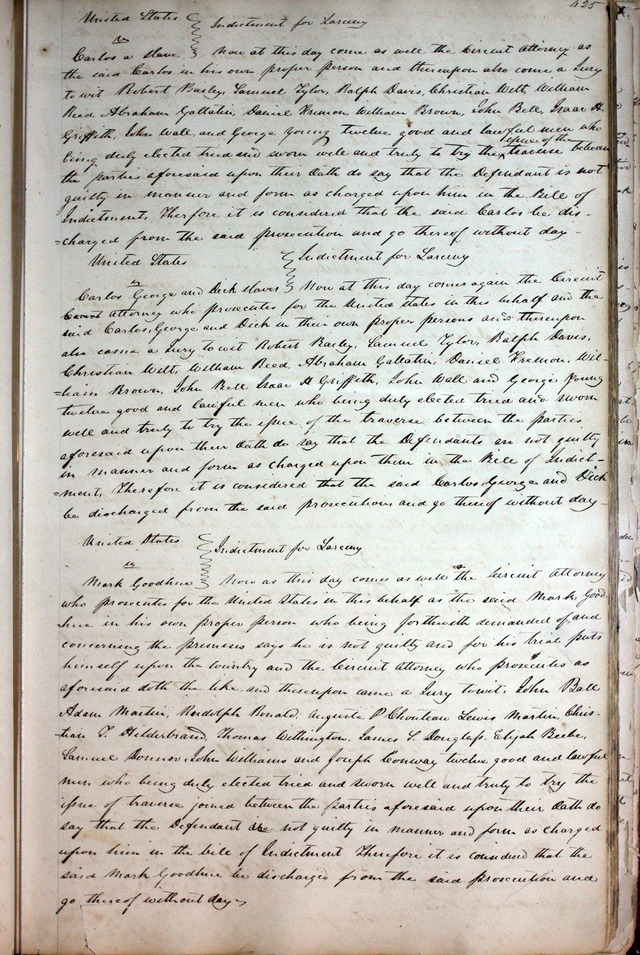 425
United States } Indictment for Larceny
vs
Carlos a slave } Now at this day come as well the Circuit Attorney as
the said Carlos in his own proper person and thereupon also come a Jury
to wit Robert Bailey, Samuel Tylor, Ralph Davis, Christian Witt, William
Reed, Abraham Gallatin, Daniel Freemon, William Brown, John Bell, Isaac H
Griffith, John Wall, and George Young twelve good and lawful men who
issue of the
being duly elected tried and sworn well and truly to try the traverse between
the parties aforesaid upon their Oath do say that the Defendant is not
guilty in manner and form as charged upon him in the Bill of
Indictment, Therfore it is considered that the said Carlos be dis-
=charged from the said prosecution and go thereof without day -
United States } Indictment for Larceny
vs
Carlos George and Dick slaves } Now at this day comes again the Circuit
attorney who prosecutes for the United States in this behalf and the
said Carlos, George and Dick in their own proper persons and thereupon
also came a Jury to wit Robert Bailey, Samuel Tylor, Ralph Davis,
Christian Witt, William Reed, Abraham Gallatin, Daniel Freemon, Wil-
=liam Brown, John Bell Isaac H Griffith, John Wall and George Young
twelve good and lawful men who being duly elected tried and sworn
well and truly to try the issue of the traverse between the parties
aforesaid upon their Oath do say that the Defendants are not guilty
in manner and form as charged upon them in the Bill of Indict-
=ment, Therefore it is considered that the said Carlos George and Dick
be discharged from the said prosecution and go thereof without day -
United States } Indictment for Larceny
vs
Mark Goodhue } Now as this day comes as well the Circuit Attorney
who prosecutes for the United States in this behalf as the said Mark Good
hue in his own proper person who being forthwith demanded of and
concerning the premises says he is not guilty and for his trial puts
himself upon the Country and the Circuit attorney who prosecutes as
aforesaid doth the like, and thereupon came a Jury to wit, John Ball
Adam Martin, Randolph Ronald, Auguste P Chouteau Lewis Martin, Chris-
tian T. Hilderbrand, Thomas Withington, James S. Douglass, Elijah Beebe,
Samuel Donner, John Williams and Joseph Conway twelve good and lawful
men who being duly elected tried and sworn well and truly to try the
issue of traverse joined between the parties aforesaid upon their Oath do
say that the Defendant is not guilty in manner and form as charged
upon him in the bill of Indictment Therefore it is considered that the
said Mark Goodhue be discharged from the said prosecution and
go thereof without day -